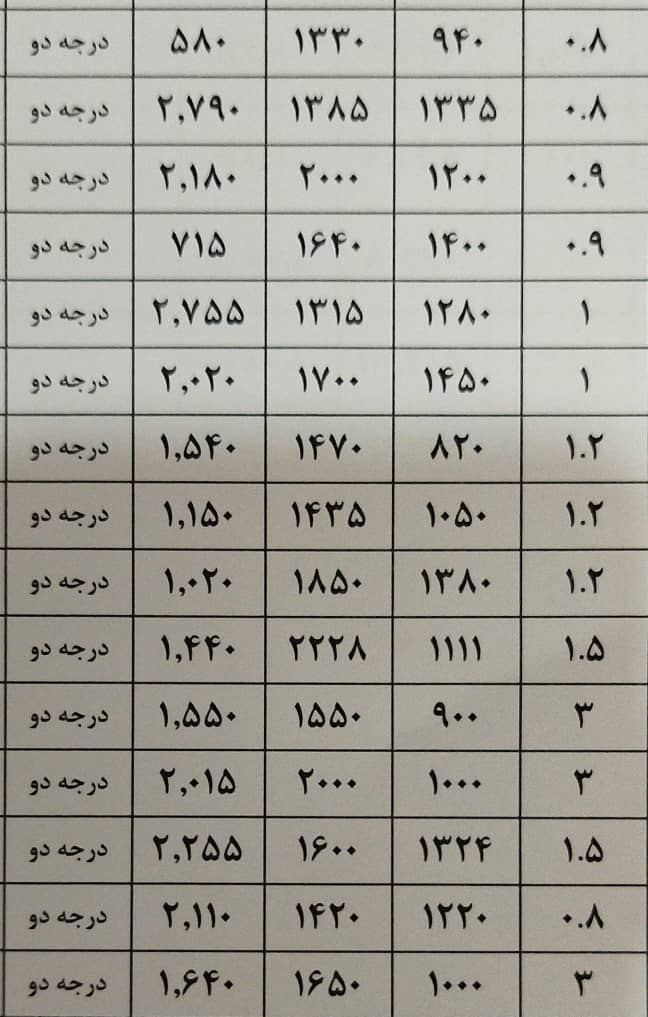 ۰.۸ ۹۴۰ ۱۳۳۰ ۵۸۰ درجه دو
۰.۸ ۱۳۳۵ ۱۳۸۵ ۲,۷۹۰ درجه دو
۰.۹ ۱۲۰۰ ۲۰۰۰ ۲,۱۸۰ درجه دو
۰.۹ ۱۴۰۰ ۱۶۴۰ ۷۱۵ درجه دو
۱ ۱۲۸۰ ۱۳۱۵ ۲,۷۵۵ درجه دو
۱ ۱۴۵۰ ۱۷۰۰ ۲,۰۲۰ درجه دو
۱.۲ ۸۲۰ ۱۴۷۰ ۱,۵۴۰ درجه دو
۱.۲ ۱۰۵۰ ۱۴۳۵ ۱,۱۵۰ درجه دو
۱.۲ ۱۳۸۰ ۱۸۵۰ ۱,۰۲۰ درجه دو
۱.۵ ۱۱۱۱ ۲۲۲۸ ۱,۴۴۰ درجه دو
۳ ۹۰۰ ۱۵۵۰ ۱,۵۵۰ درجه دو
۳ ۱۰۰۰ ۲۰۰۰ ۲,۰۱۵ درجه دو
۱.۵ ۱۳۲۴ ۱۶۰۰ ۲,۲۵۵ درجه دو
۰.۸ ۱۲۲۰ ۱۴۲۰ ۲,۱۱۰ درجه دو
۳ ۱۰۰۰ ۱۶۵۰ ۱,۶۴۰ درجه دو